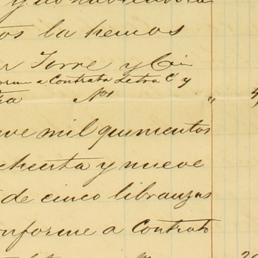 tos la hemos
r Torre y Cia
orme a Contrata Letra C y
ra Nº1 " 4
ve mil quinientos
chenta y nueve
de cinco libranzas
onforme a Contrato